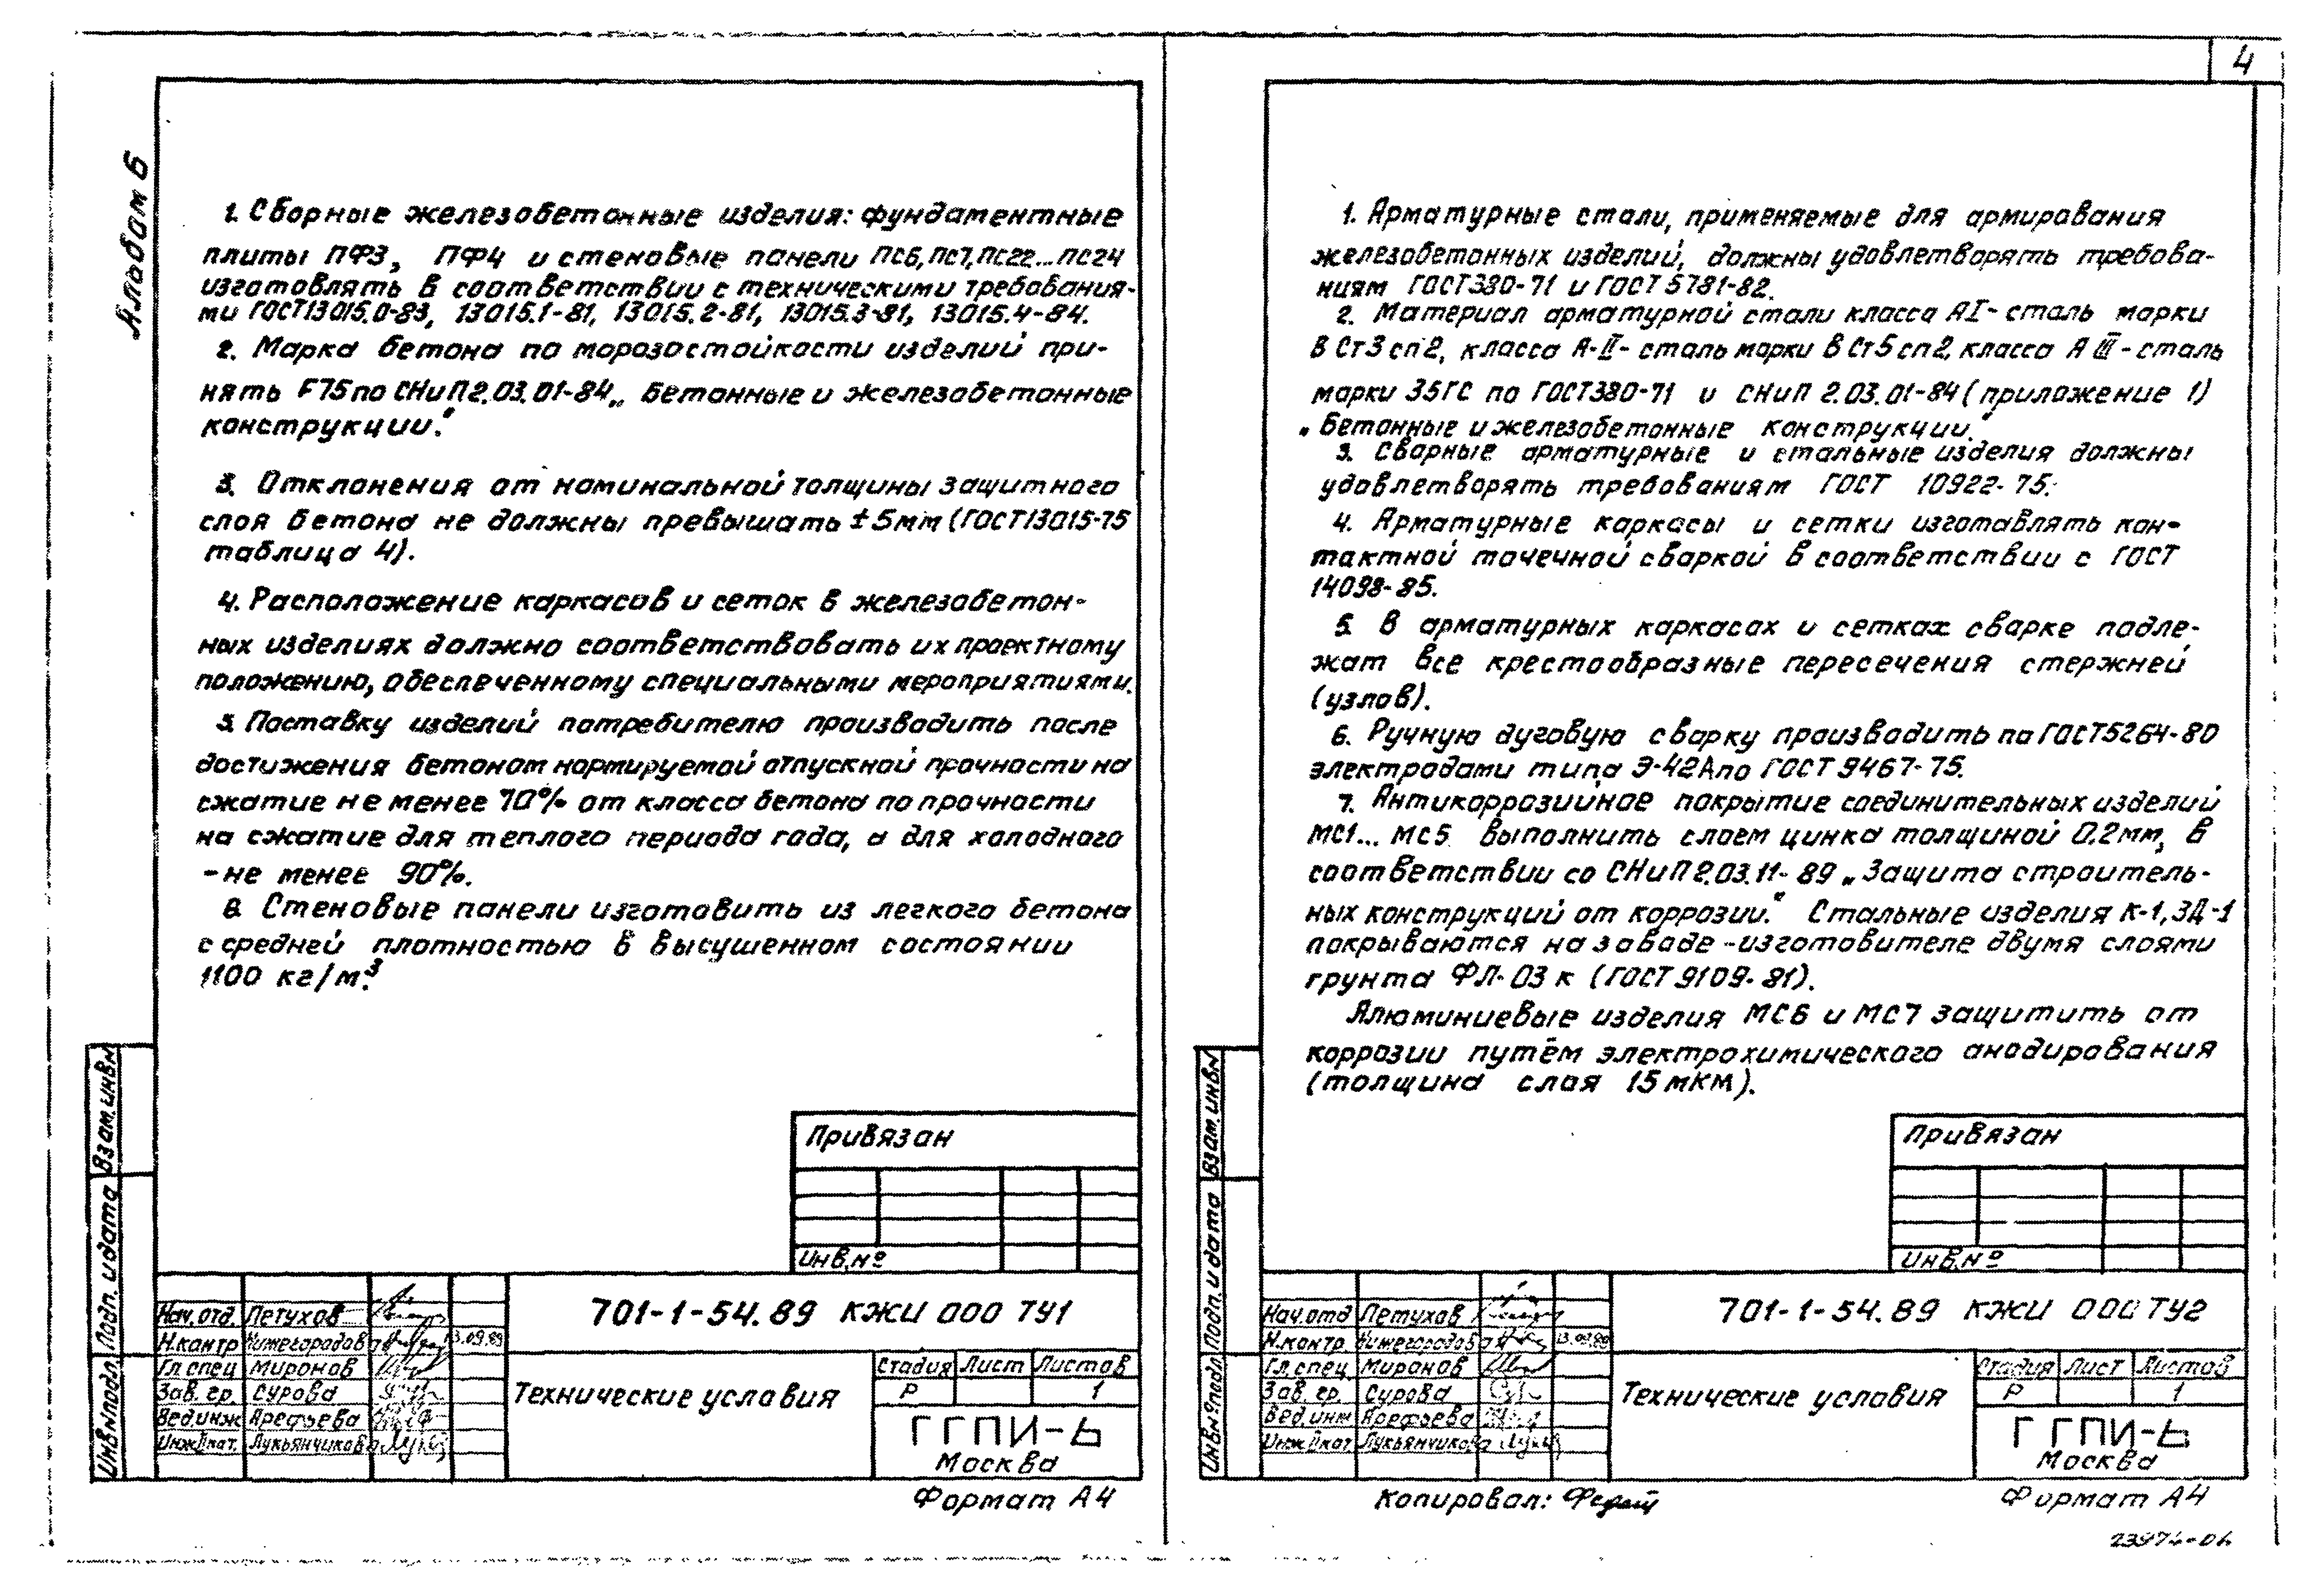 4
Альбом 6
1. Сборные железобетонные изделия: фундаментные
плиты ПФ3, ПФ4 и стеновые панели ПС6, ПС7, ПС22...ПС24
изготовлять в соответствии с техническими требования-
ми ГОСТ13015.0-83, 13015.1-81, 13015.2-81, 13015.3-81, 13015.4-84.
2. Марка бетона по морозостойкости изделий при-
нять F75 по СНиП 2.03.01-84 „Бетонные и железобетонные
конструкции."
3. Отклонения от номинальной толщины защитного
слоя бетона не должны превышать ±5мм (ГОСТ13015-75
таблица 4).
4. Расположение каркасов и сеток в железобетон-
ных изделиях должно соответствовать их проектному
положению, обеспеченному специальными мероприятиями.
5. Поставку изделий потребителю производить после
достижения бетоном нормируемой отпускной прочности на
сжатие не менее 70% от класса бетона по прочности
на сжатие для теплого периода года, а для холодного
-не менее 90%.
6. Стеновые панели изготовить из легкого бетона
с средней плотностью в высушенном состоянии
1100 кг/м³.
Привязан
Инв.№
Взам.инв.№
Подп. и дата
Инв.№подл.
Нач.отд. Петухов
Н.контр Нижегородова 13.09.89
Гл.спец Миронов
Зав. гр. Сурова
Вед.инж Арефьева
Инж.II кат. Лукьянчикова
701-1-54.89 КЖИ 000 ТУ1
Технические условия
Стадия Лист Листов
Р 1
ГГПИ-6
Москва
Формат А4
1. Арматурные стали, применяемые для армирования
железобетонных изделий, должны удовлетворять требова-
ниям ГОСТ380-71 и ГОСТ 5781-82.
2. Материал арматурной стали класса АI- сталь марки
ВСт3сп2, класса А-II- сталь марки ВСт5сп2, класса АIII-сталь
марки 35ГС по ГОСТ380-71 и СНиП 2.03.01-84 (приложение 1)
„Бетонные и железобетонные конструкции."
3. Сварные арматурные и стальные изделия должны
удовлетворять требованиям ГОСТ 10922-75.
4. Арматурные каркасы и сетки изготавлять кон-
тактной точечной сваркой в соответствии с ГОСТ
14098-85.
5. В арматурных каркасах и сетках сварке подле-
жат все крестообразные пересечения стержней
(узлов).
6. Ручную дуговую сварку производить по ГОСТ5264-80
электродами типа Э-42А по ГОСТ 9467-75.
7. Антикоррозийное покрытие соединительных изделий
МС1... МС5 выполнить слоем цинка толщиной 0.2мм, в
соответствии со СНиП 2.03.11-89 „Защита строитель-
ных конструкций от коррозии." Стальные изделия К-1, ЗД-1
покрываются на заводе-изготовителе двумя слоями
грунта ФЛ-03 к (ГОСТ 9109-81).
Алюминиевые изделия МС6 и МС7 защитить от
коррозии путём электрохимического анодирования
(толщина слоя 15 мкм).
Привязан
Инв.№
Взам.инв.№
Подп. и дата
Инв.№подл.
Нач.отд Петухов
Н.контр. Нижегородова 13.09.89
Гл.спец Миронов
Зав. гр. Сурова
Вед.инж Арефьева
Инж.II кат Лукьянчикова
701-1-54.89 КЖИ 000 ТУ2
Технические условия
Стадия Лист Листов
Р 1
ГГПИ-6
Москва
Копировал:
Формат А4